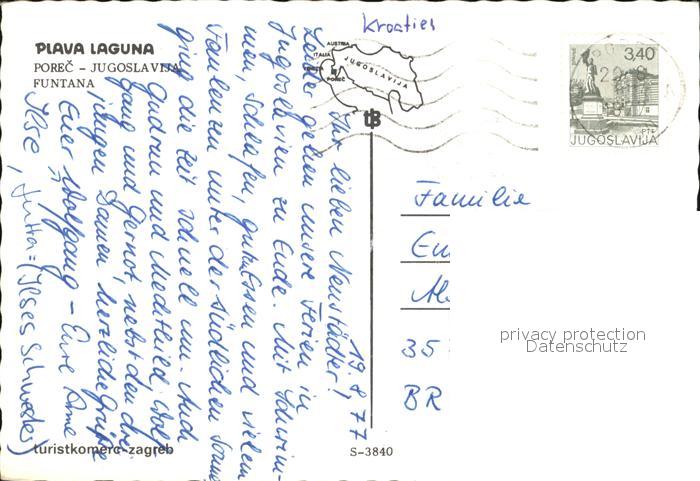 Kroatien
PLAVA LAGUNA
POREČ – JUGOSLAVIJA
FUNTANA
AUSTRIA
ITALIA
JUGOSLAVIJA
POREČ
3,40
PTT
JUGOSLAVIJA
19.8.77
Ihr lieben Neustädter!
Leider gehen unsere Ferien in
Jugoslavien zu Ende. Mit Schwim-
men, Schlafen, gut Essen und vielem
Faulenzen unter der südlichen Sonne
ging die Zeit schnell um. Auch
Gudrun und Medithild, Wolf-
gang und Gernot, nebst den drei
jungen Damen herzliche Grüße
Euer Wolfgang – Eure Anne
Ilse, Jutta = (Ilses Schwester)
Familie
35
BR
privacy protection
Datenschutz
turistkomerc-zagreb
S-3840